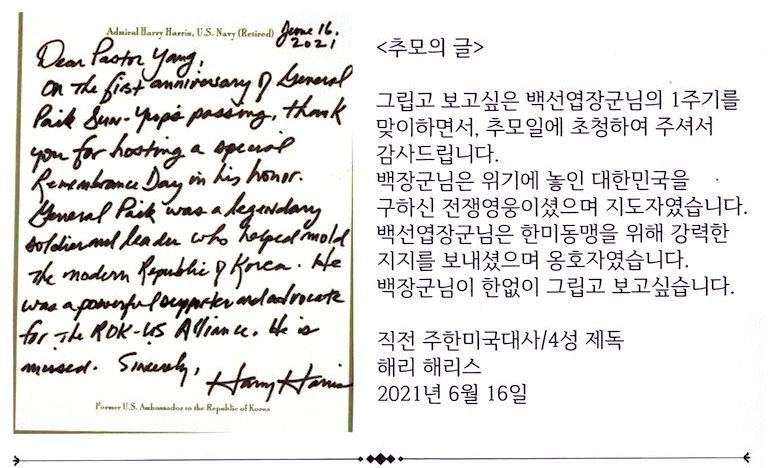 Admiral Harry Harris, U.S. Navy (Retired)
June 16,
2021
Dear Pastor Yang,
On the first anniversary of General
Paik Sun-Yup's passing, thank
you for hosting a special
Remembrance Day in his honor.
General Paik was a legendary
soldier and leader who helped mold
the modern Republic of Korea. He
was a powerful supporter and advocate
for the ROK-US Alliance. He is
missed. Sincerely,
Harry Harris
Former U.S. Ambassador to the Republic of Korea
<추모의 글>
그립고 보고싶은 백선엽장군님의 1주기를
맞이하면서, 추모일에 초청하여 주셔서
감사드립니다.
백장군님은 위기에 놓인 대한민국을
구하신 전쟁영웅이셨으며 지도자였습니다.
백선엽장군님은 한미동맹을 위해 강력한
지지를 보내셨으며 옹호자였습니다.
백장군님이 한없이 그립고 보고싶습니다.
직전 주한미국대사/4성 제독
해리 해리스
2021년 6월 16일